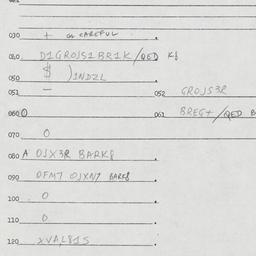 030 + GO CAREFUL .
040 D1GROJS1 BR1K/QED K8
050 $ )1NDZL .
051 — 052 GROJS3R
060 0 061 BREG+/QED B
070 0
080 A OJX3R BARK8 .
090 OFM7 OJXN7 BARK8 .
100 0 .
110 0 .
120 XVAL81S .